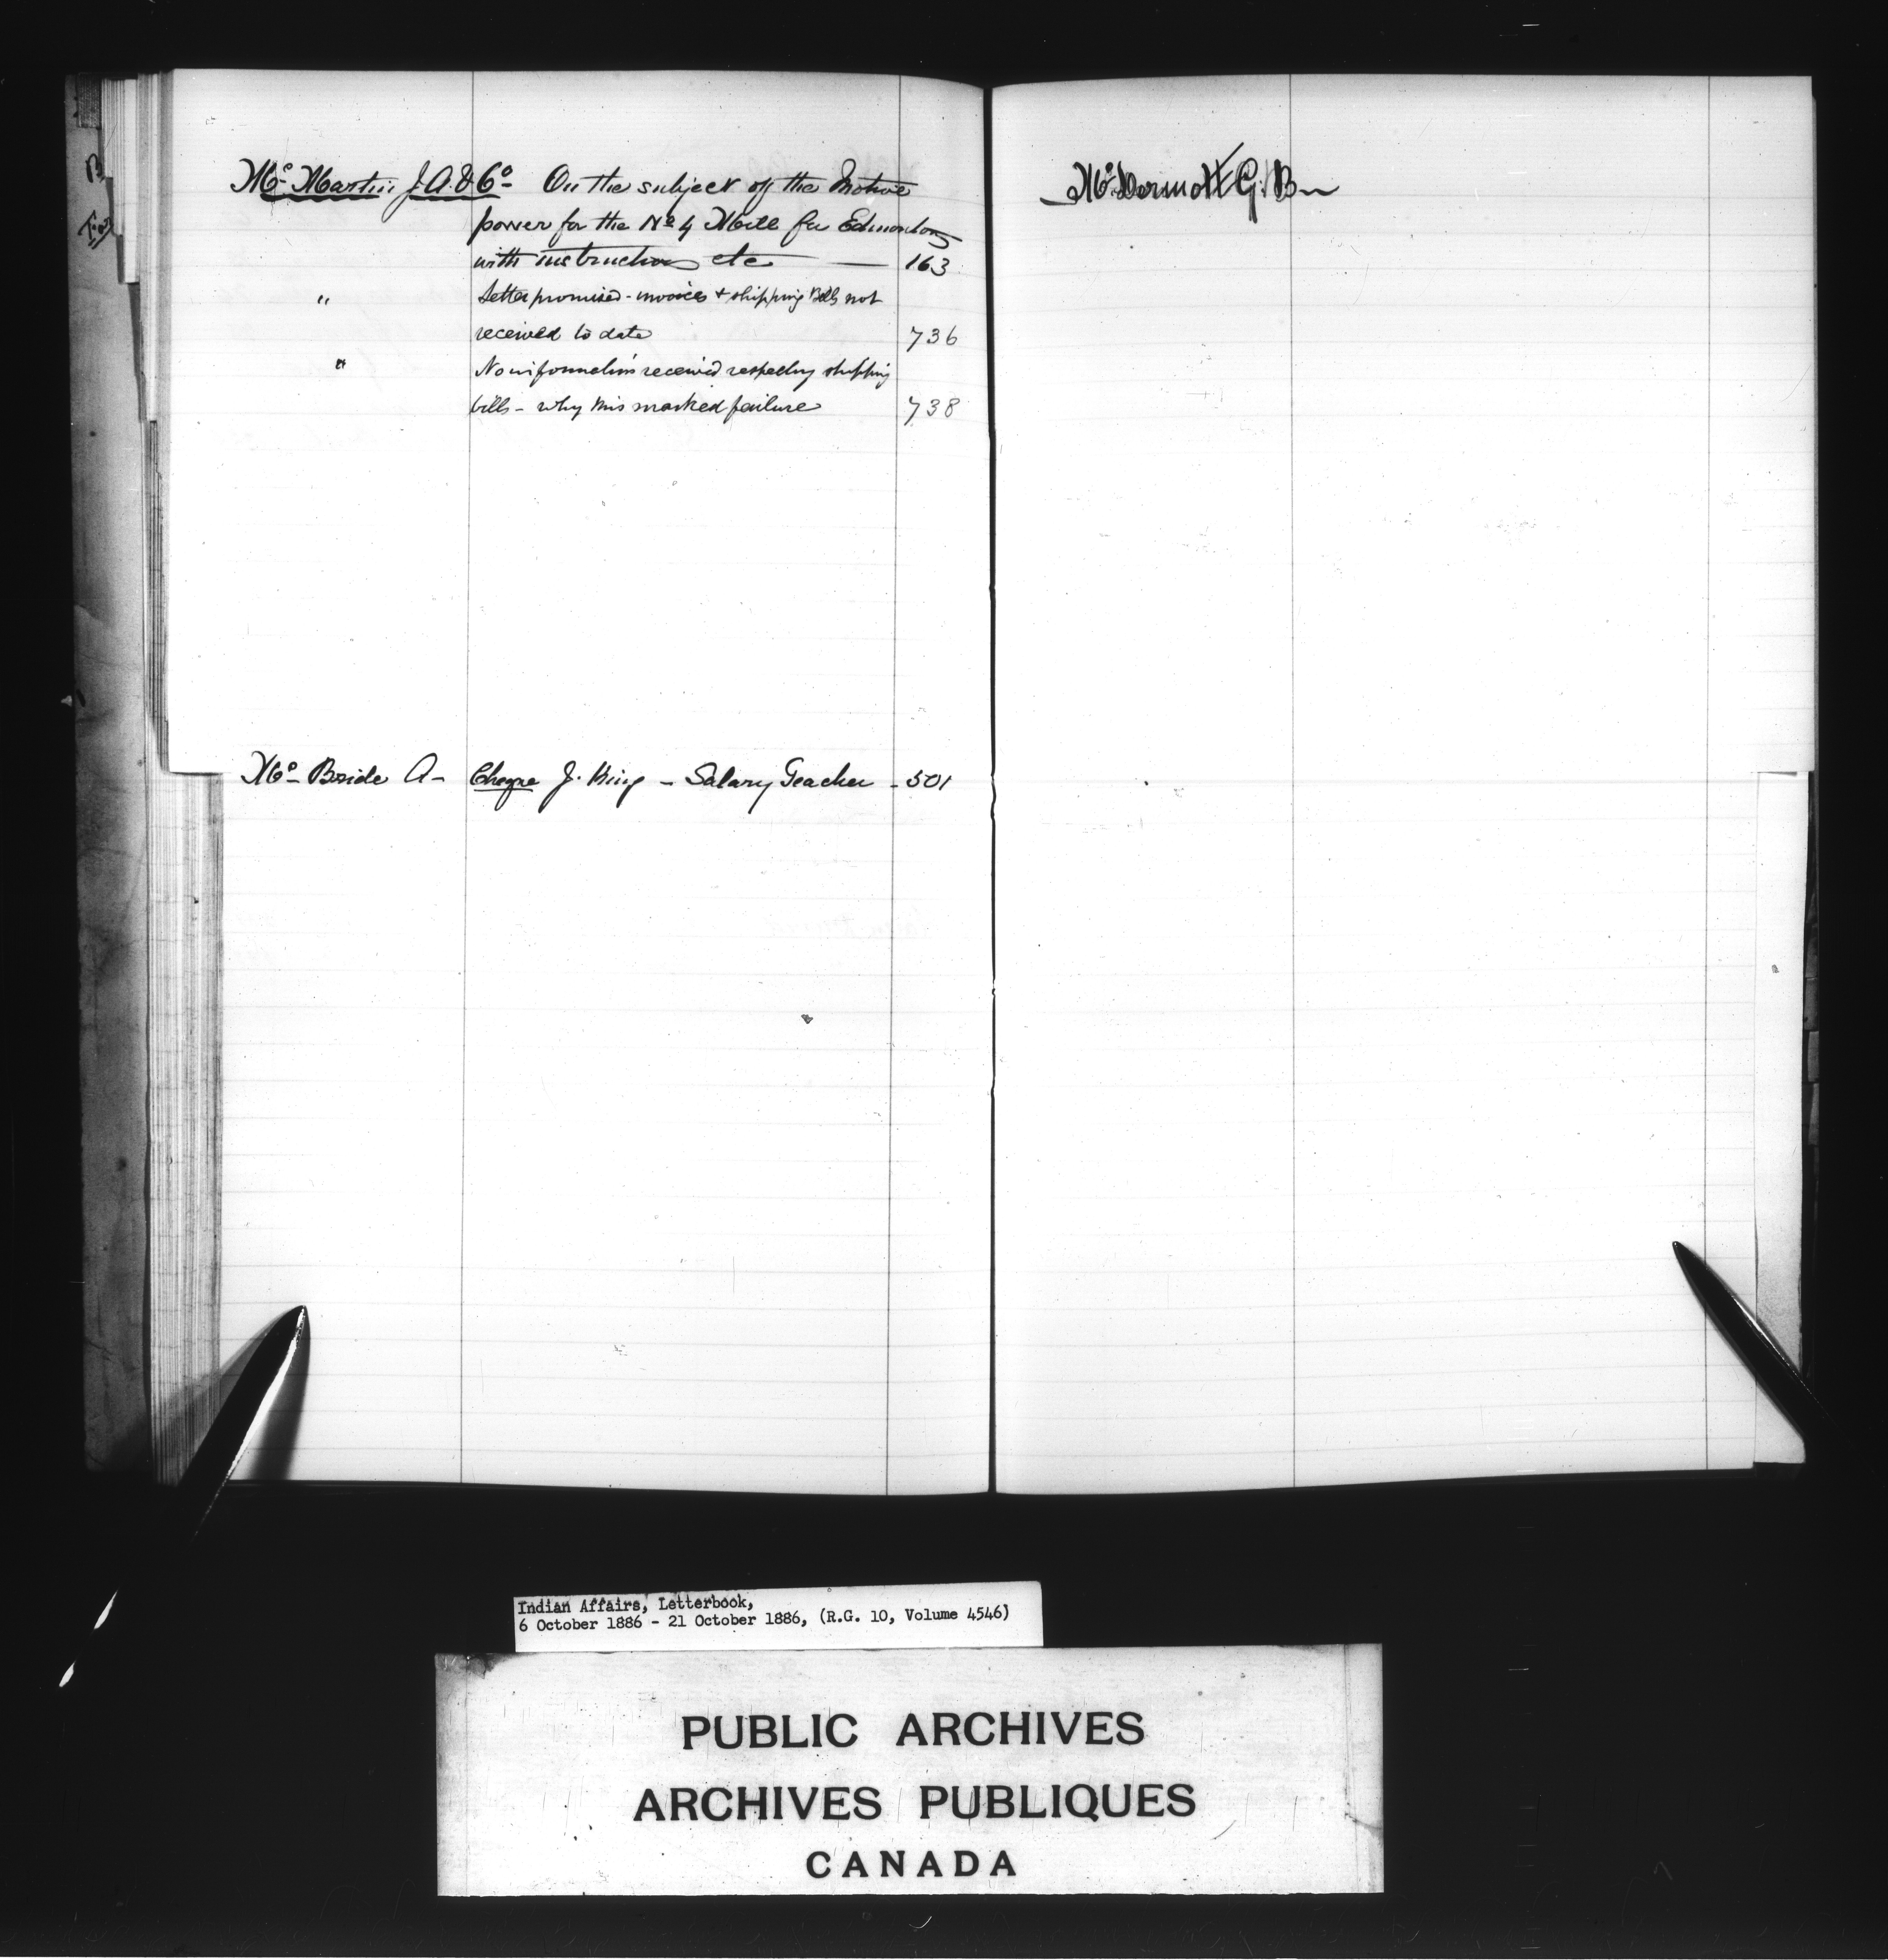 Mc Martin J. A. & Co - On the subject of the Motive
power for the No 4 Mill for Edmonton
with instructions etc — 163
" Letter promised - invoices & shipping Bills not
received to date 736
" No information received respecting shipping
bills - why this marked failure 738
Mc Bride A - Cheque J. King - Salary Teacher - 501
Mc Dermott G. B -
Indian Affairs, Letterbook,
6 October 1886 - 21 October 1886, (R.G. 10, Volume 4546)
PUBLIC ARCHIVES
ARCHIVES PUBLIQUES
CANADA